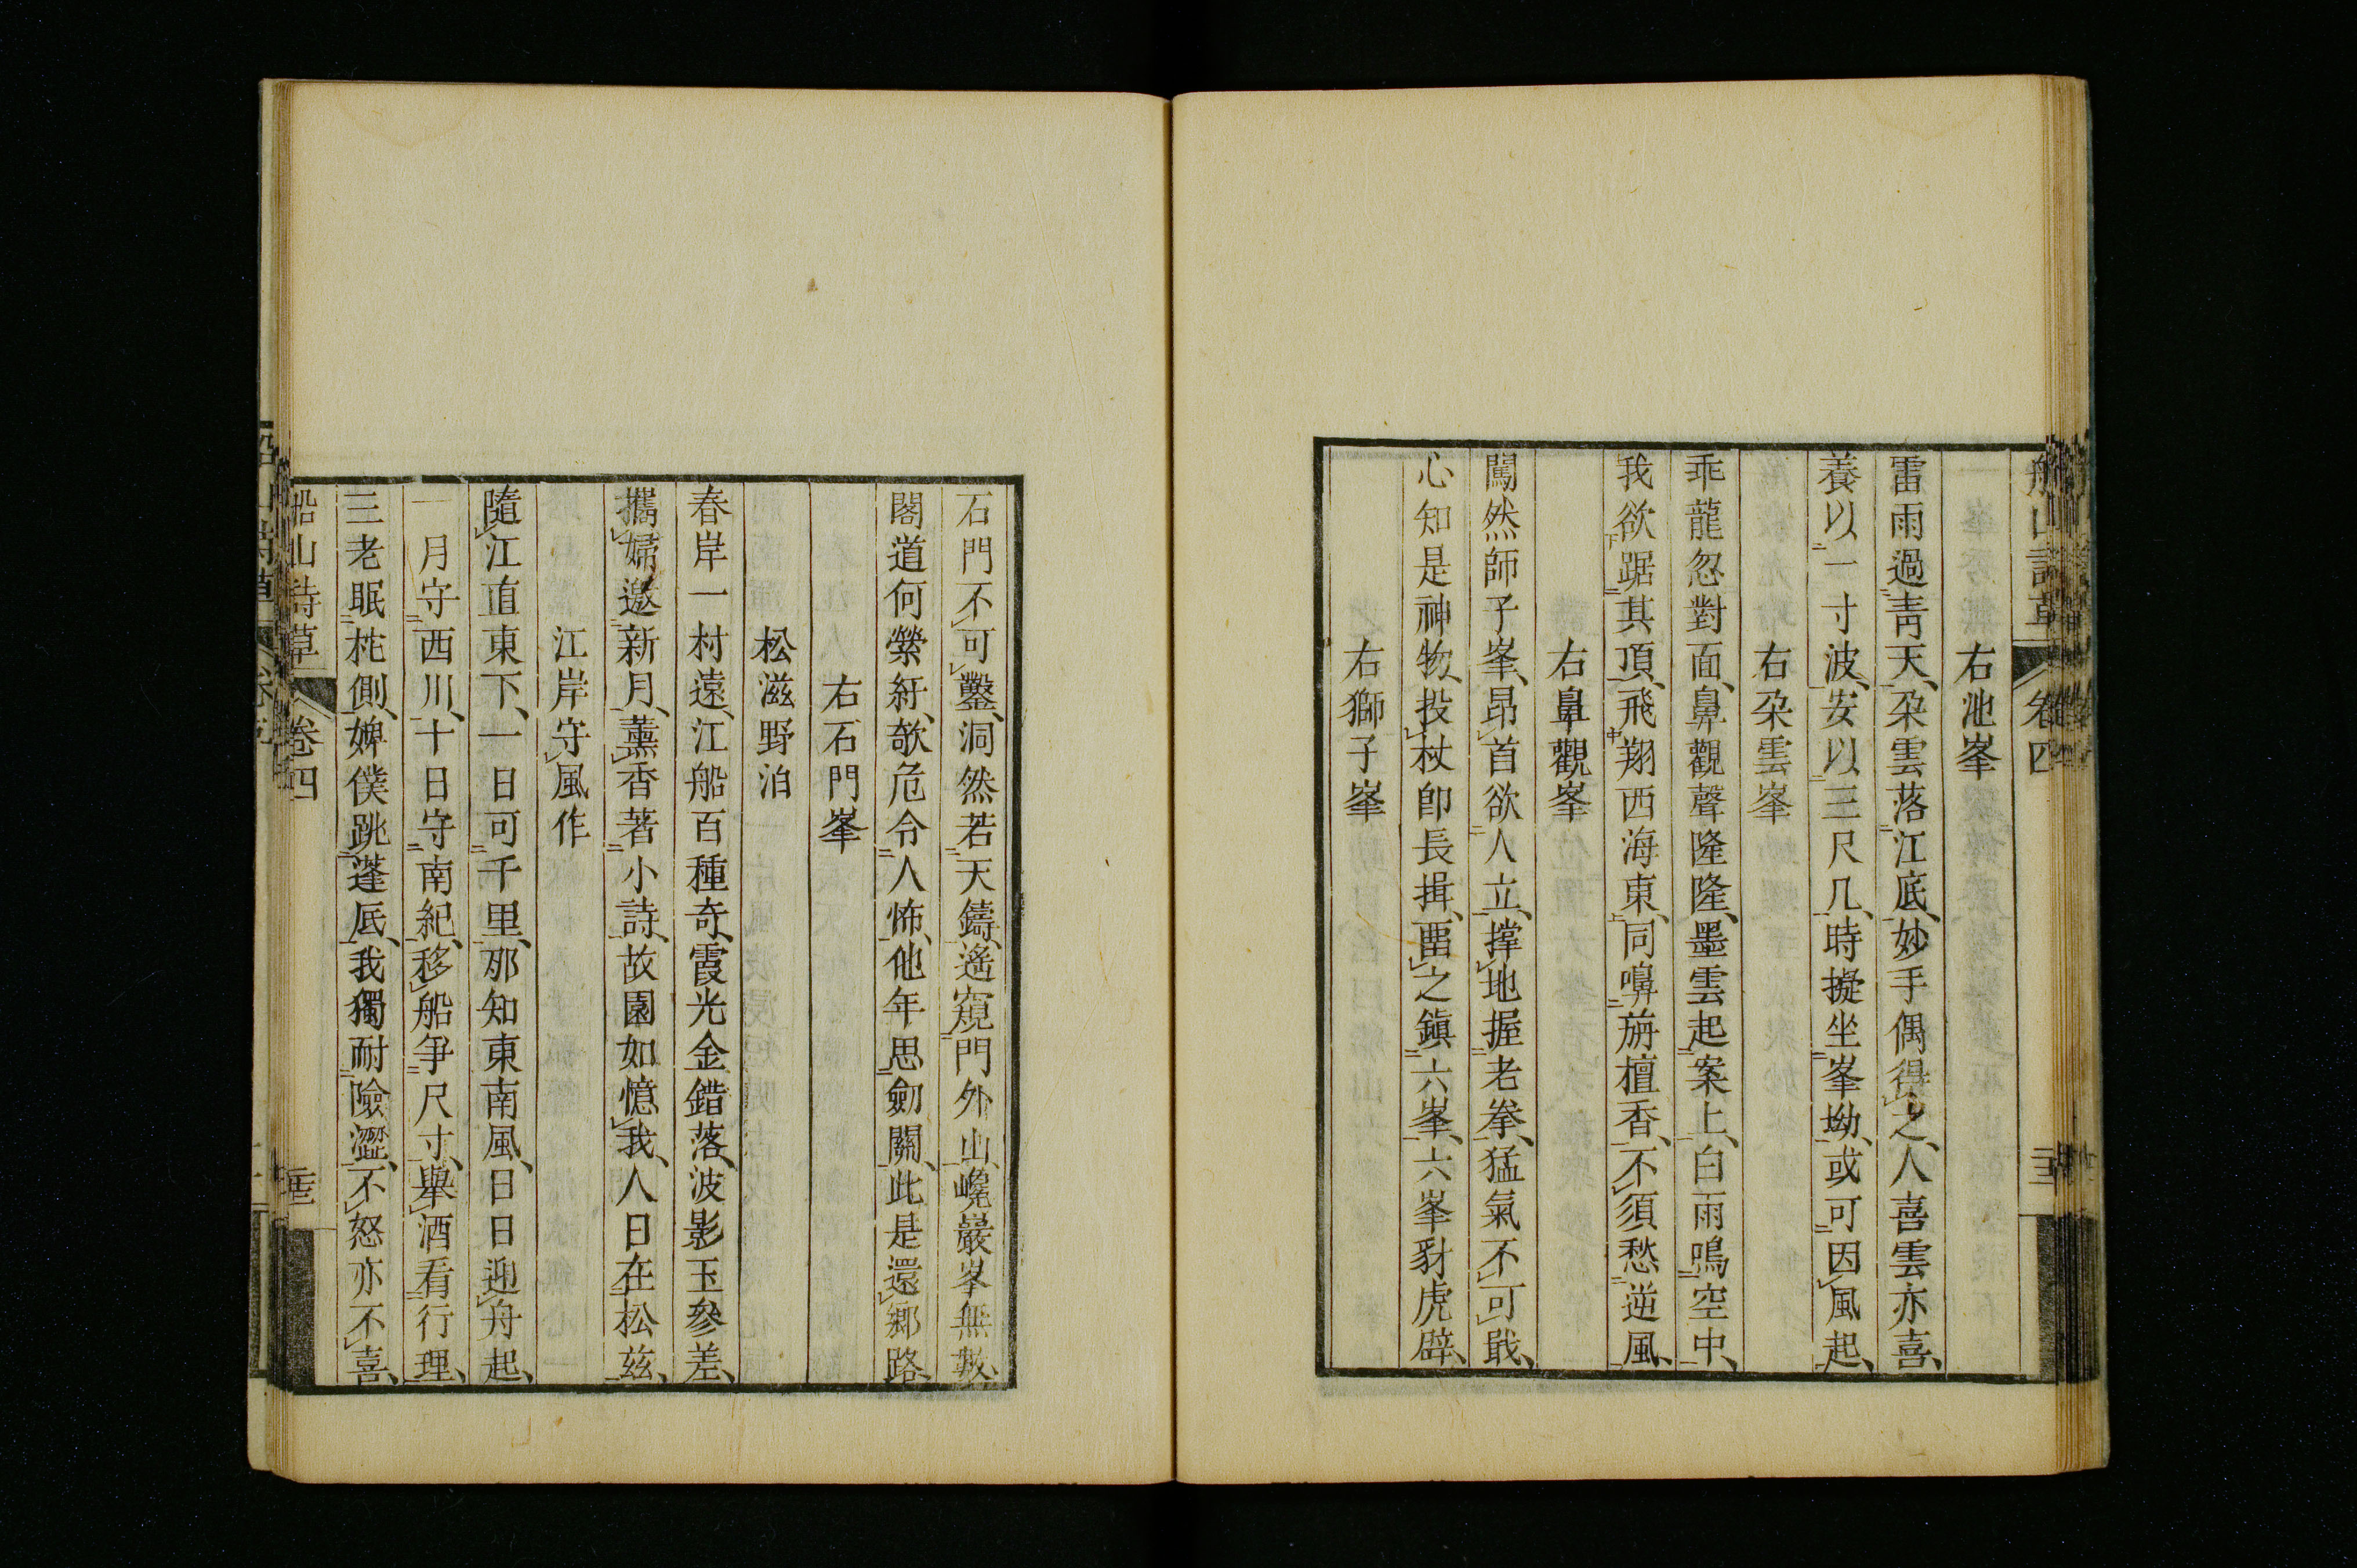 船山詩草 卷四
右池峯
雷雨過靑天、朶雲落江底、妙手偶得之、人喜雲亦喜、
養以一寸波、安以三尺几、時擬坐峯坳、或可因風起、
右朶雲峯
乖龍忽對面、鼻觀聲隆隆、墨雲起案上、白雨鳴空中、
我欲踞其頂、飛翔西海東、同嗅旃檀香、不須愁逆風、
右鼻觀峯
闖然師子峯、昂首欲人立、撑地握老拳、猛氣不可戢、
心知是神物、投杖卽長揖、畱之鎭六峯、六峯豺虎辟、
右獅子峯
石門不可鑿、洞然若天鑄、遙窺門外山、巉巖峯無數、
閣道何縈紆、欹危令人怖、他年思劒關、此是還鄕路、
右石門峯
松滋野泊
春岸一村遠、江船百種奇、霞光金錯落、波影玉參差、
攜婦邀新月、薰香著小詩、故園如憶我、人日在松茲、
江岸守風作
隨江直東下、一日可千里、那知東南風、日日迎舟起、
一月守西川、十日守南紀、移船爭尺寸、舉酒看行理、
三老眠柁側、婢僕跳蓬底、我獨耐險澀、不怒亦不喜、
船山詩草 卷四